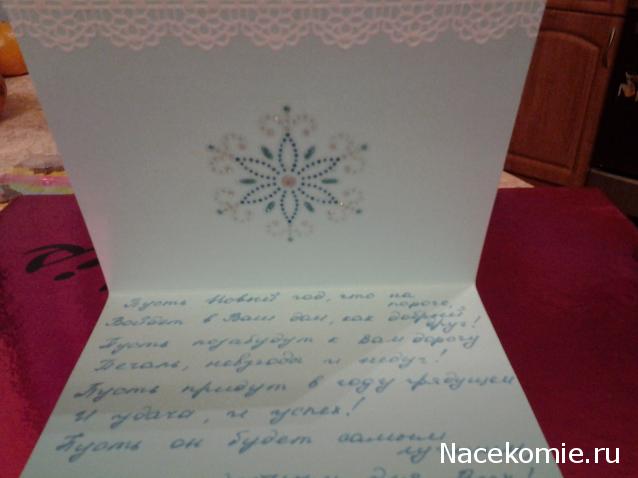 Пусть Новый год, что на
пороге,
Войдет в Ваш дом, как добрый
друг!
Пусть позабудут к Вам дорогу
Печаль, невзгоды и недуг!
Пусть придут в году грядущем
И удача, и успех!
Пусть он будет самым
лучшим
для Всех!
Nacekomie.ru